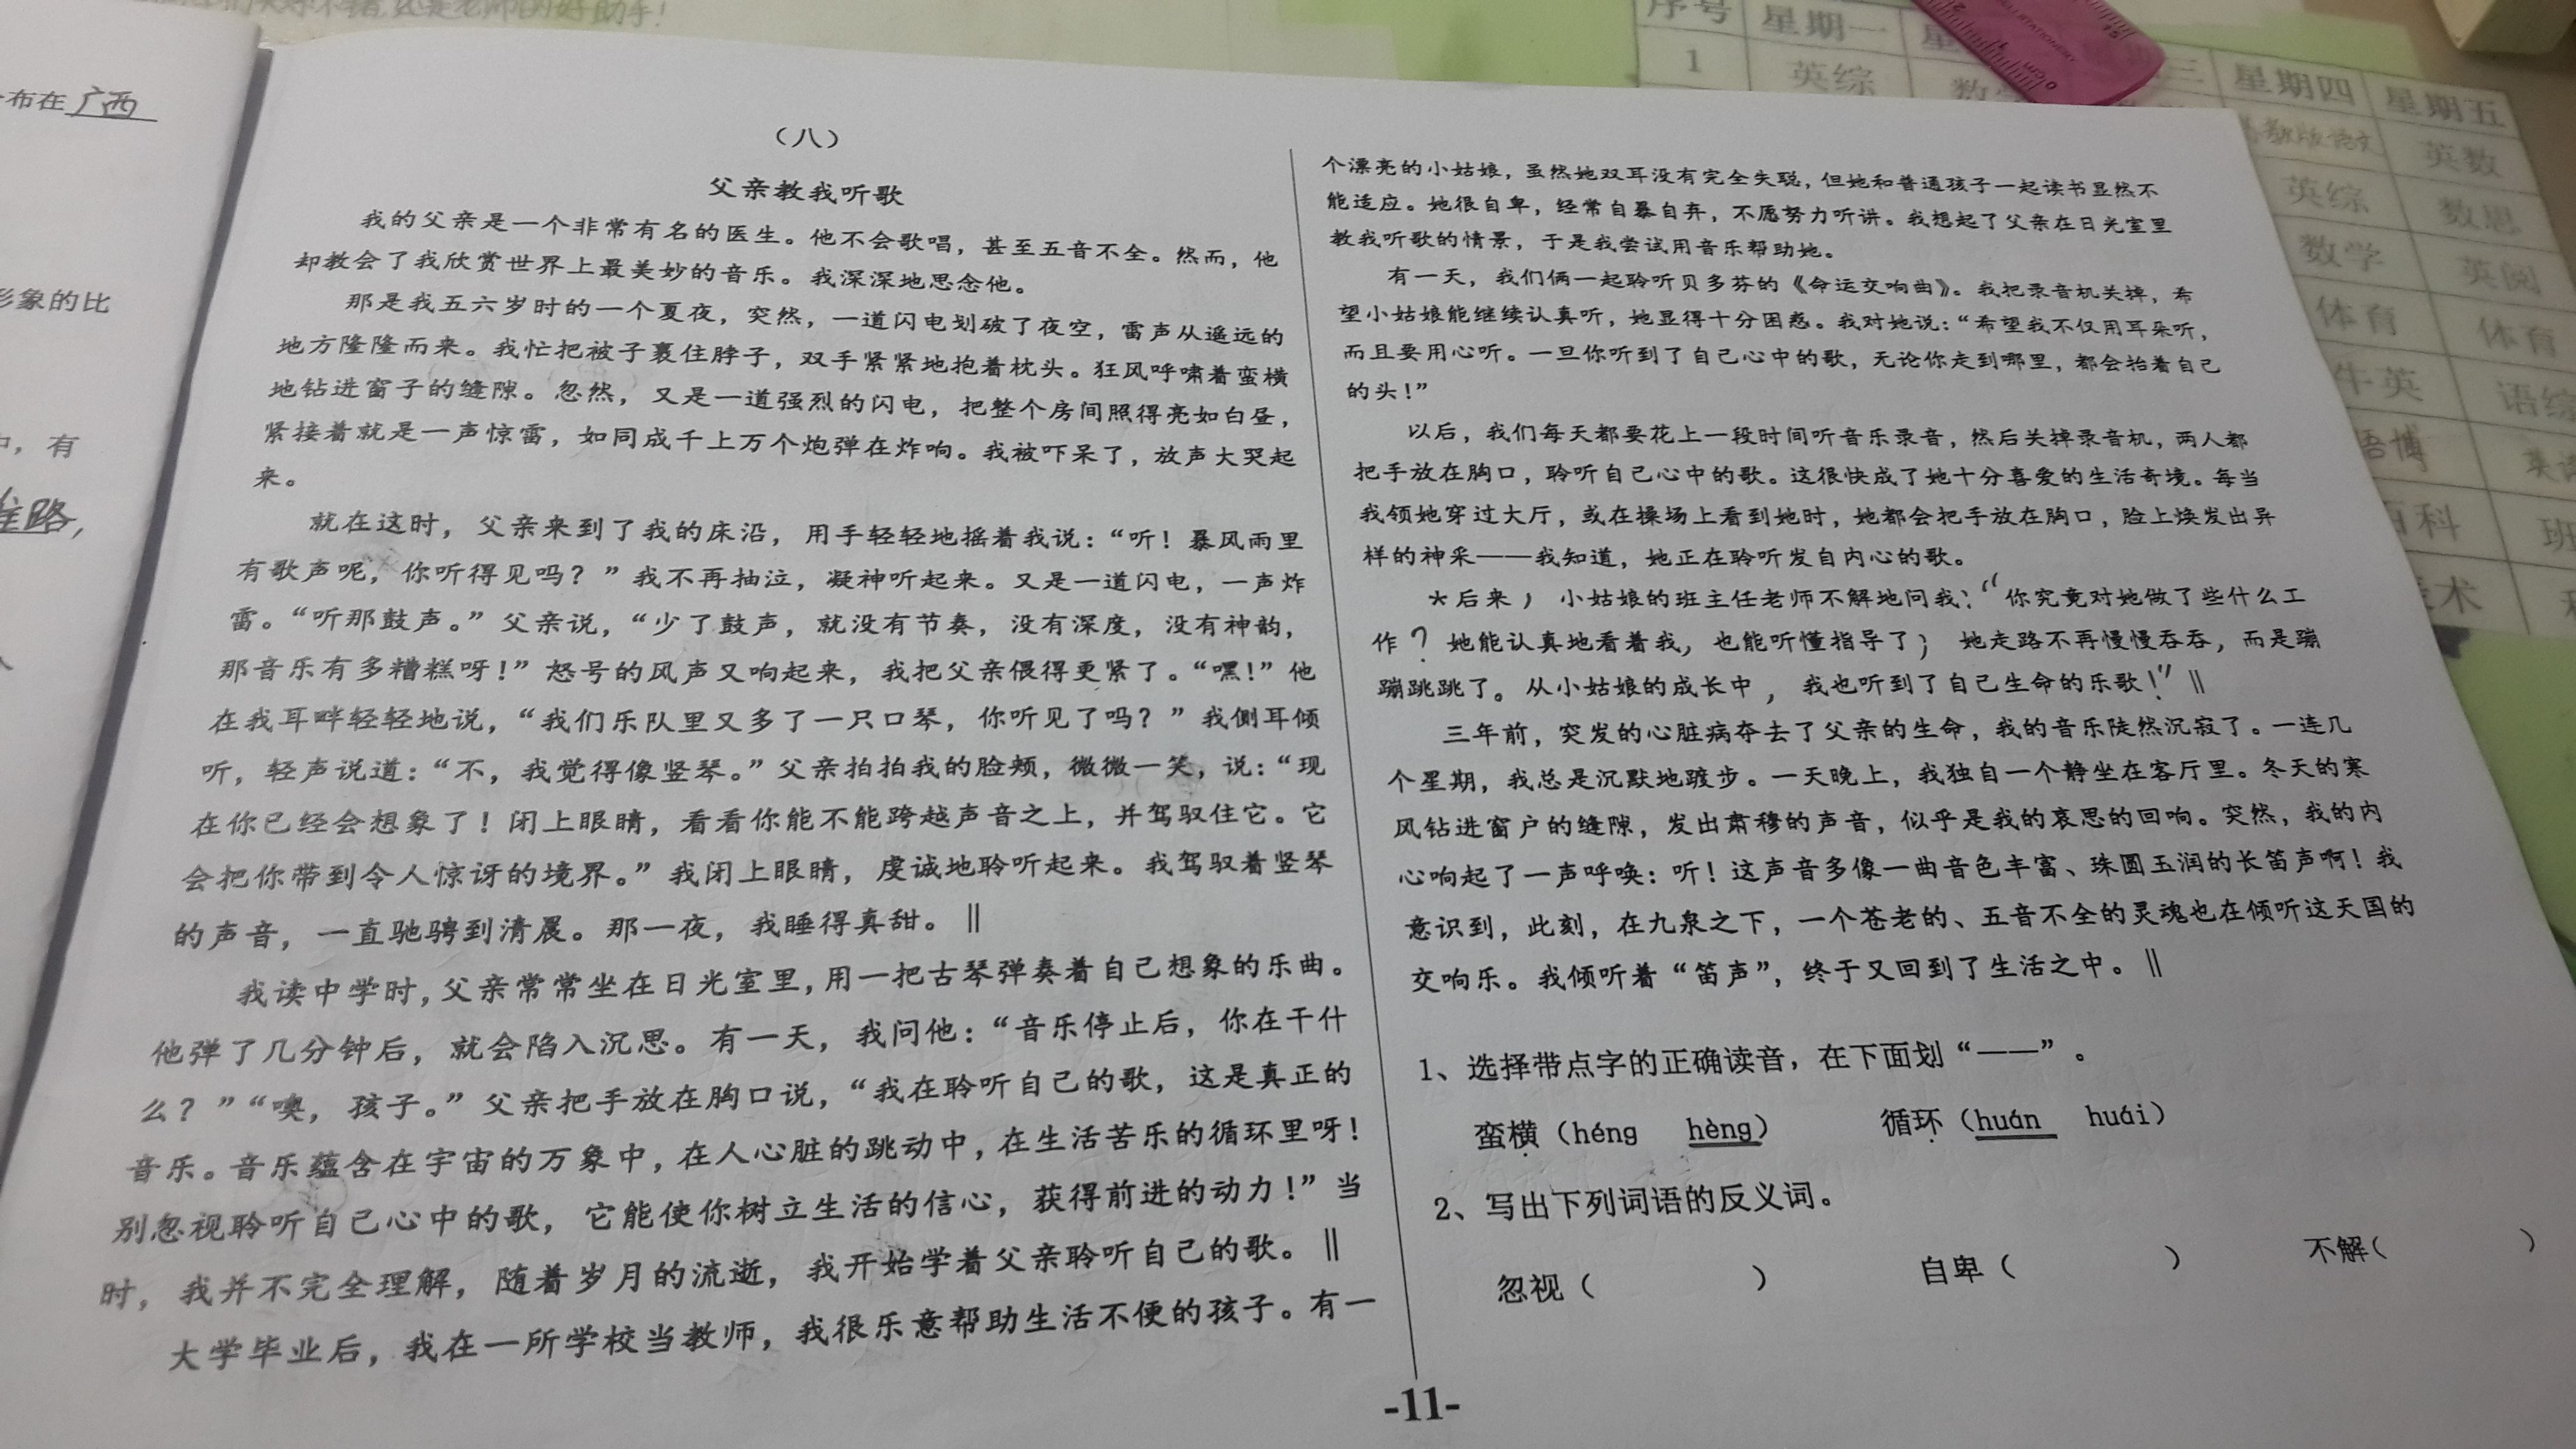 广西
布在
形象的比
中，有
佳路，
序号 星期一 三 星期四 星期五
1 英综 数学 英数
英综 数思
数学 英阅
体育 体育
牛英 语综
语博
百科 班
美术
（八）
父亲教我听歌
我的父亲是一个非常有名的医生。他不会歌唱，甚至五音不全。然而，他
却教会了我欣赏世界上最美妙的音乐。我深深地思念他。
那是我五六岁时的一个夏夜，突然，一道闪电划破了夜空，雷声从遥远的
地方隆隆而来。我忙把被子裹住脖子，双手紧紧地抱着枕头。狂风呼啸着蛮横
地钻进窗子的缝隙。忽然，又是一道强烈的闪电，把整个房间照得亮如白昼，
紧接着就是一声惊雷，如同成千上万个炮弹在炸响。我被吓呆了，放声大哭起
来。
就在这时，父亲来到了我的床沿，用手轻轻地摇着我说：“听！暴风雨里
有歌声呢，你听得见吗？”我不再抽泣，凝神听起来。又是一道闪电，一声炸
雷。“听那鼓声。”父亲说，“少了鼓声，就没有节奏，没有深度，没有神韵，
那音乐有多糟糕呀！”怒号的风声又响起来，我把父亲偎得更紧了。“嘿！”他
在我耳畔轻轻地说，“我们乐队里又多了一只口琴，你听见了吗？”我侧耳倾
听，轻声说道：“不，我觉得像竖琴。”父亲拍拍我的脸颊，微微一笑，说：“现
在你已经会想象了！闭上眼睛，看看你能不能跨越声音之上，并驾驭住它。它
会把你带到令人惊讶的境界。”我闭上眼睛，虔诚地聆听起来。我驾驭着竖琴
的声音，一直驰骋到清晨。那一夜，我睡得真甜。‖
我读中学时，父亲常常坐在日光室里，用一把古琴弹奏着自己想象的乐曲。
他弹了几分钟后，就会陷入沉思。有一天，我问他：“音乐停止后，你在干什
么？”“噢，孩子。”父亲把手放在胸口说，“我在聆听自己的歌，这是真正的
音乐。音乐蕴含在宇宙的万象中，在人心脏的跳动中，在生活苦乐的循环里呀！
别忽视聆听自己心中的歌，它能使你树立生活的信心，获得前进的动力！”当
时，我并不完全理解，随着岁月的流逝，我开始学着父亲聆听自己的歌。‖
大学毕业后，我在一所学校当教师，我很乐意帮助生活不便的孩子。有一
个漂亮的小姑娘，虽然她双耳没有完全失聪，但她和普通孩子一起读书显然不
能适应。她很自卑，经常自暴自弃，不愿努力听讲。我想起了父亲在日光室里
教我听歌的情景，于是我尝试用音乐帮助她。
有一天，我们俩一起聆听贝多芬的《命运交响曲》。我把录音机关掉，希
望小姑娘能继续认真听，她显得十分困惑。我对她说：“希望我不仅用耳朵听，
而且要用心听。一旦你听到了自己心中的歌，无论你走到哪里，都会抬着自己
的头！”
以后，我们每天都要花上一段时间听音乐录音，然后关掉录音机，两人都
把手放在胸口，聆听自己心中的歌。这很快成了她十分喜爱的生活奇境。每当
我领她穿过大厅，或在操场上看到她时，她都会把手放在胸口，脸上焕发出异
样的神采——我知道，她正在聆听发自内心的歌。
*后来，小姑娘的班主任老师不解地问我：“你究竟对她做了些什么工
作？她能认真地看着我，也能听懂指导了；她走路不再慢慢吞吞，而是蹦
蹦跳跳了。从小姑娘的成长中，我也听到了自己生命的乐歌！”‖
三年前，突发的心脏病夺去了父亲的生命，我的音乐陡然沉寂了。一连几
个星期，我总是沉默地踱步。一天晚上，我独自一个静坐在客厅里。冬天的寒
风钻进窗户的缝隙，发出肃穆的声音，似乎是我的哀思的回响。突然，我的内
心响起了一声呼唤：听！这声音多像一曲音色丰富、珠圆玉润的长笛声啊！我
意识到，此刻，在九泉之下，一个苍老的、五音不全的灵魂也在倾听这天国的
交响乐。我倾听着“笛声”，终于又回到了生活之中。‖
1、选择带点字的正确读音，在下面划“——”。
蛮横（héng hèng） 循环（huán huái）
2、写出下列词语的反义词。
忽视（ ） 自卑（ ） 不解（ ）
-11-